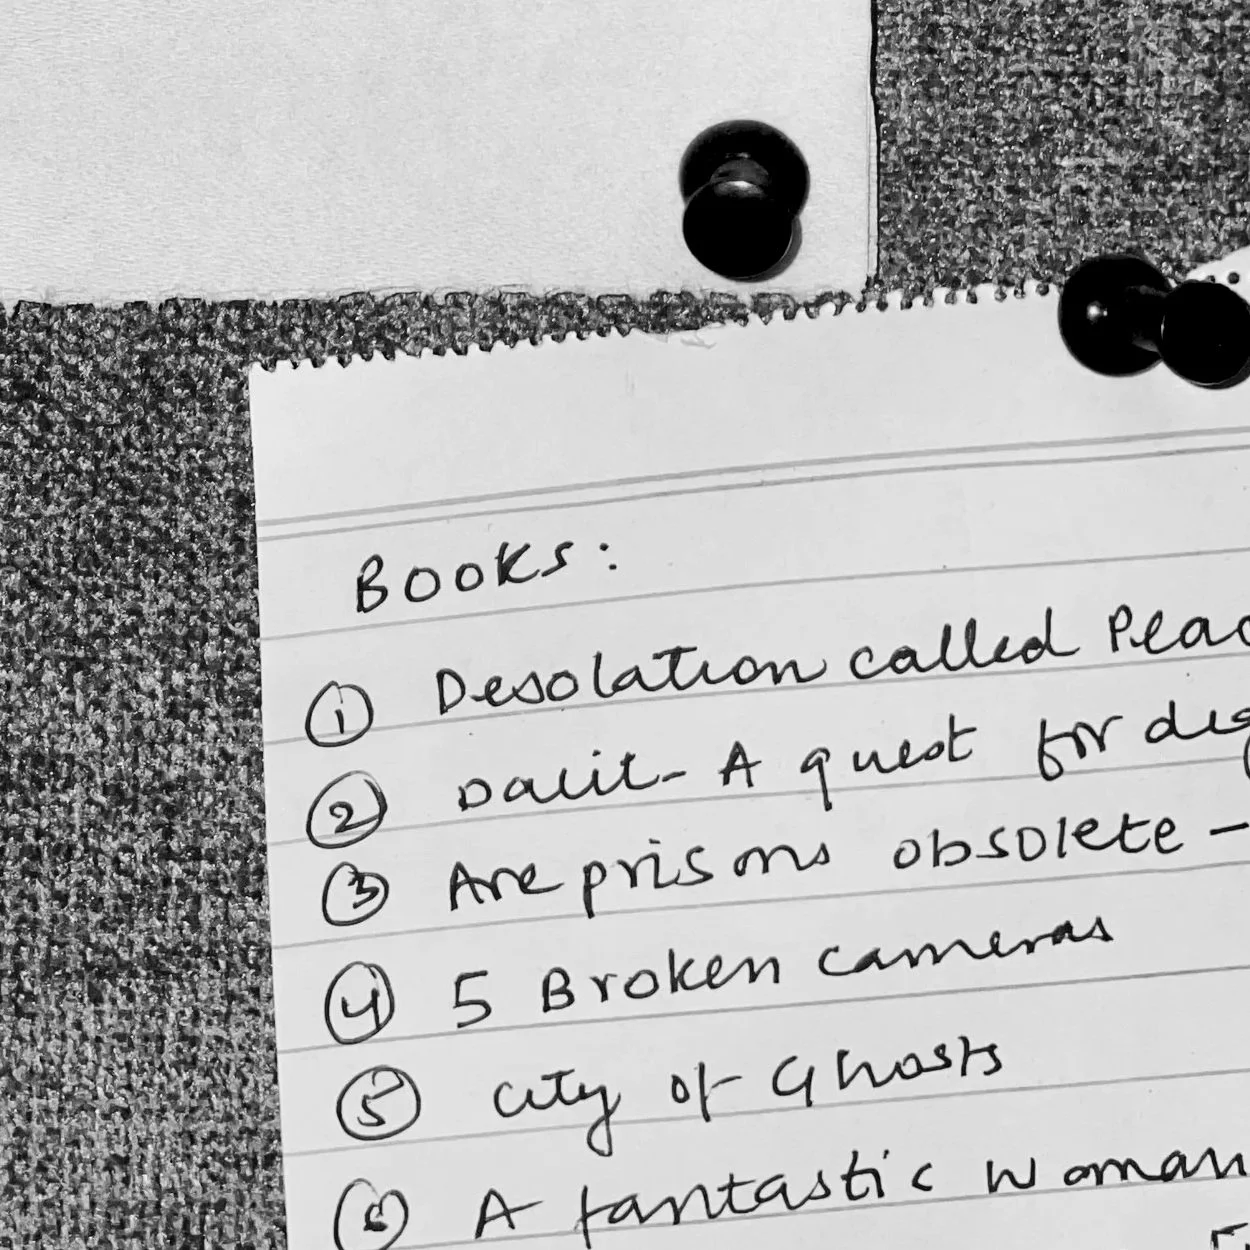 Books:
① Desolation called Peac
② Dalit - A quest for dig
③ Are prisons obsolete -
④ 5 Broken cameras
⑤ City of Ghosts
⑥ A fantastic woman